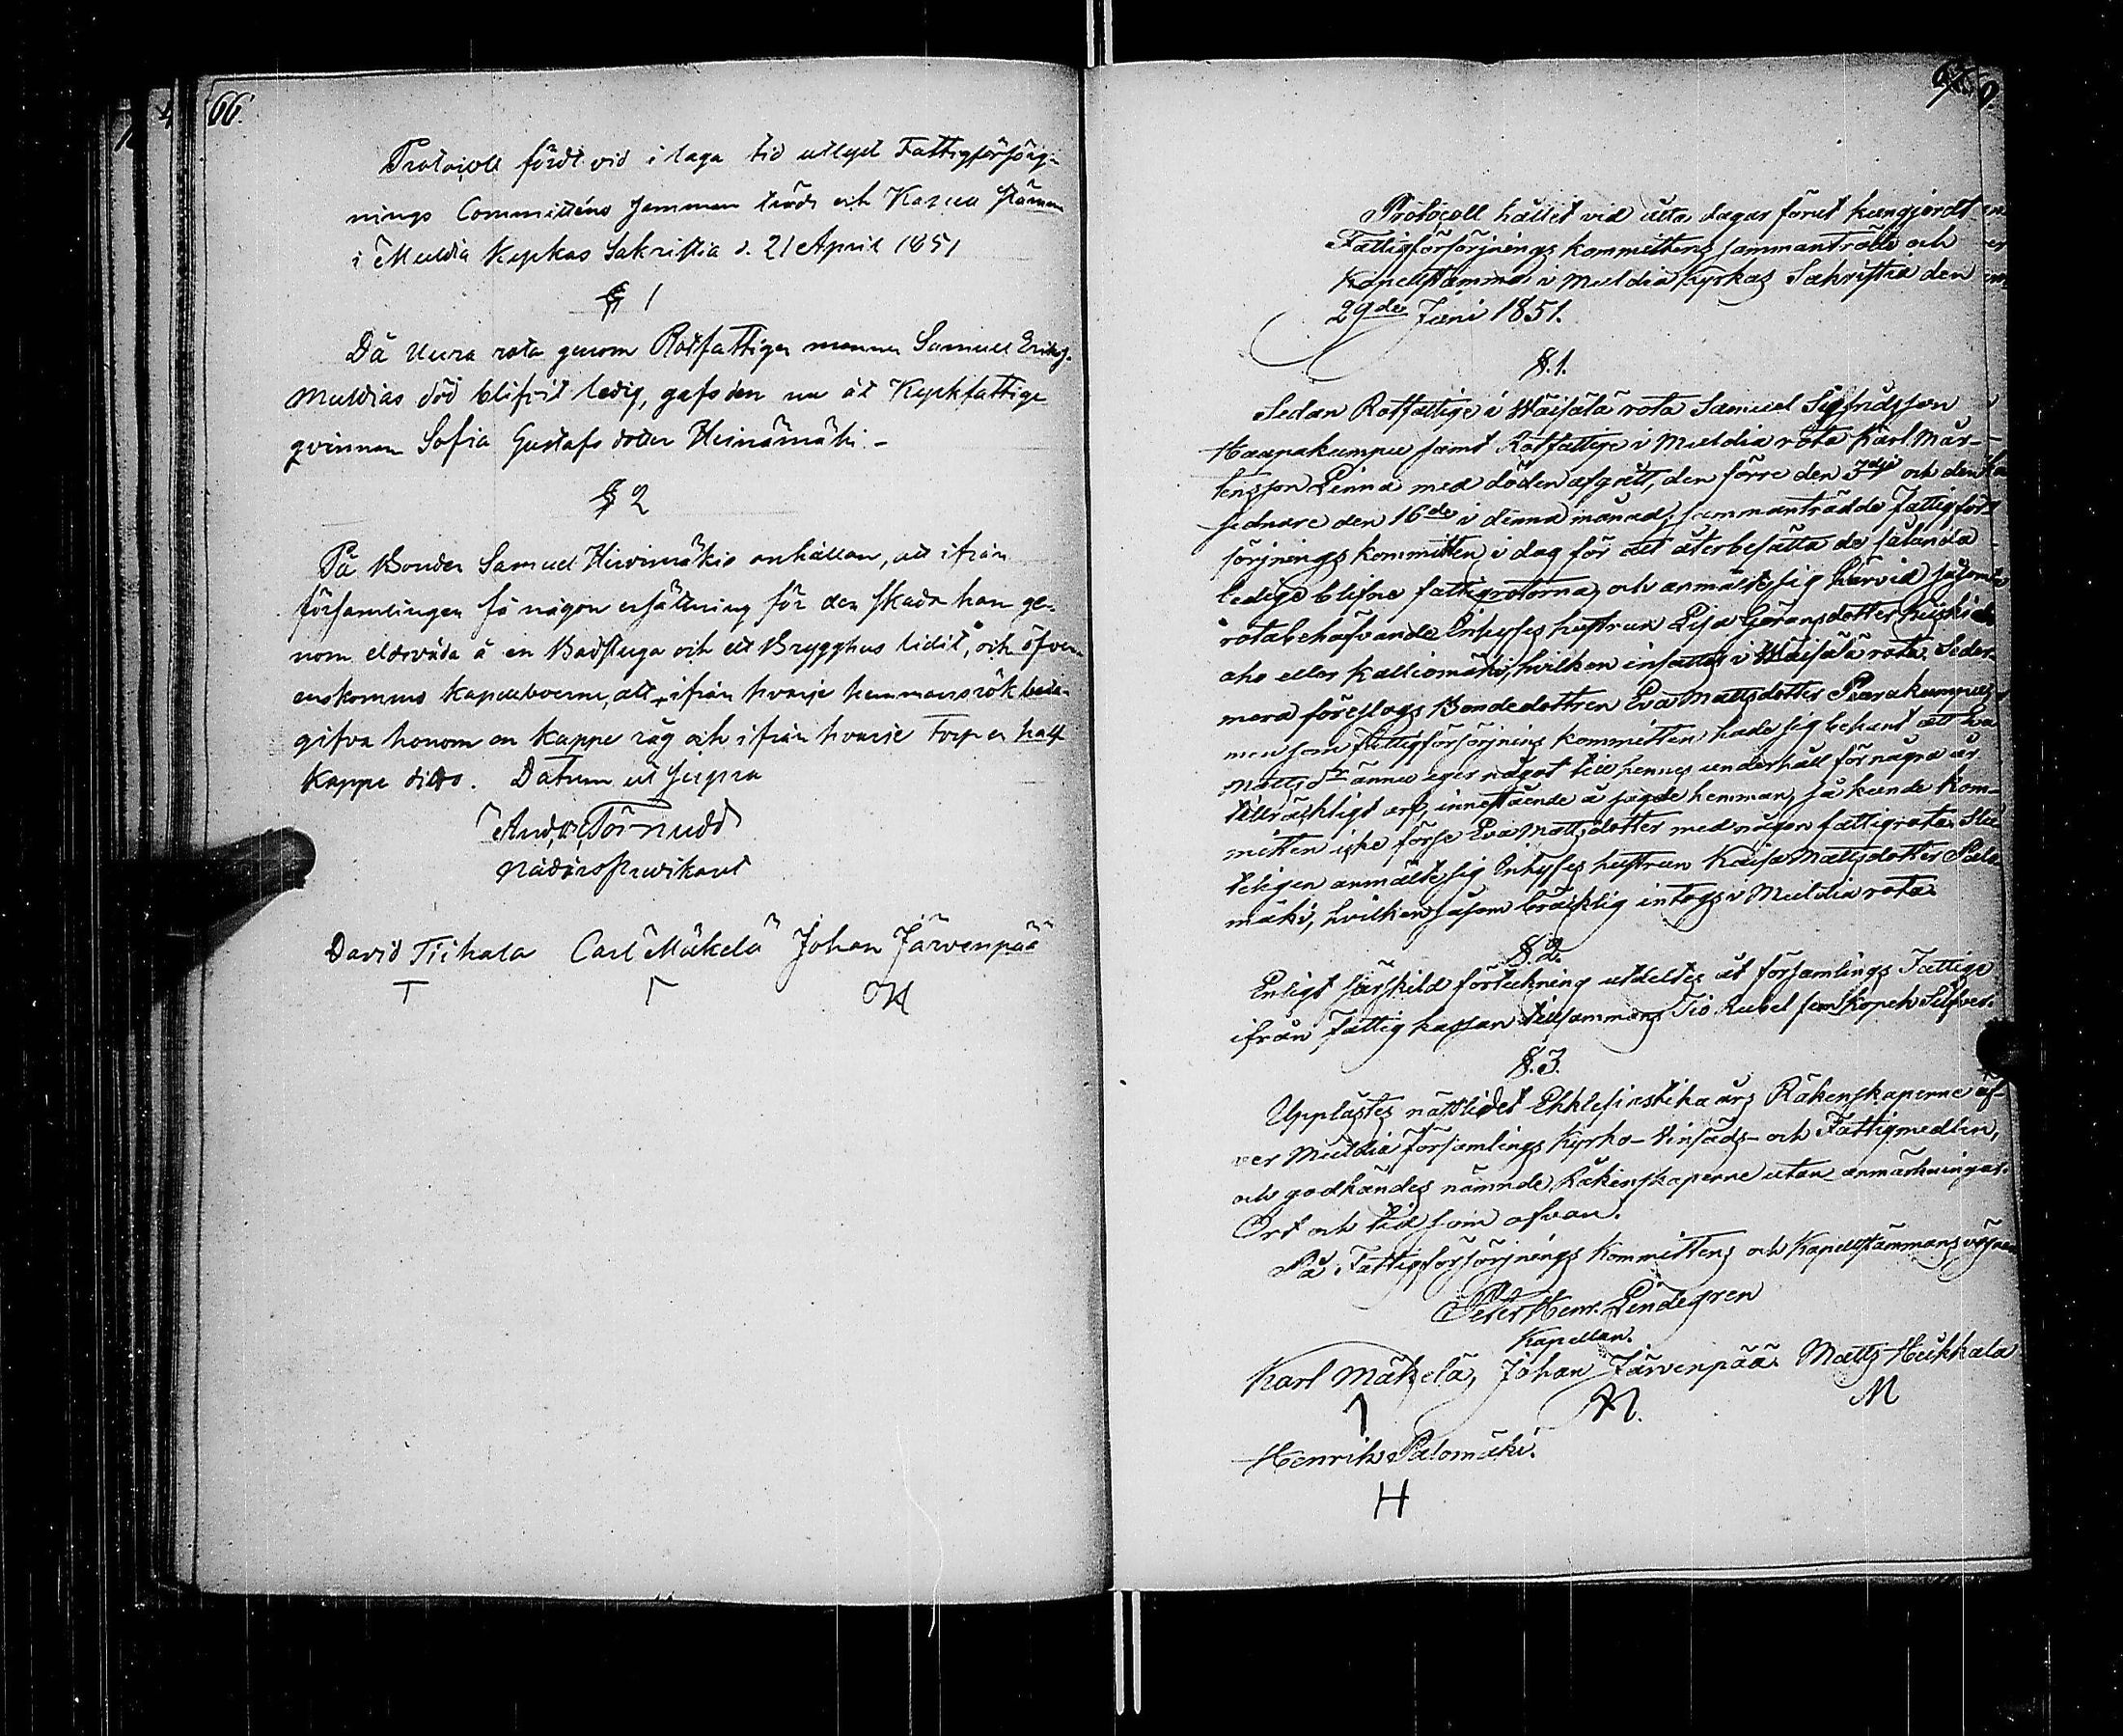 66.
Protocoll fördt vid i laga tid utlyst Fattigförsörj-
nings Committéns sammanträde och Kapell stämma
i Muldia Kyrkas Sakristia d. 21 April 1851
§ 1
Då Uura rota genom Rotfattiga mannen Samuel Ericss.
Muldias död blifvit ledig, gafs den nu åt Kyrkfattige
qvinnan Sofia Gustafs dotter Heinämäki. -
§ 2
På Bonden Samuel Hirvimäkis anhållan, att ifrån
församlingen få någon ersättning för den skada han ge-
nom eldsvåda å en Badstuga och ett Brygghus lidit, och öfver-
enskommo kapellboerne, att ifrån hvarje hemmansrök
gifva honom en kappe råg och ifrån hvarje Torp en half
kappe ditto. Datum ut supra
And. Törnudd
Nådårspredikant
David Tiihala Carl Mäkelä Johan Järvenpää
67.
Protocoll hållet vid åtta dagar förut kungjordt
Fattigförsörjnings kommittens sammanträde och
Kapellstämma i Muldia Kyrkas Sakristia den
29de Juni 1851.
§. 1.
Sedan Rotfattige i Väisälä rota Samuel Sigfridsson
Haapakumpu samt Rotfattige i Muldia rota Karl Mår-
tensson Linna med döden afgått, den förre den 3dje och den
sednare den 16de i denna månad, sammanträdde Fattigför-
sörjnings kommitten i dag för att återbesätta de sålunda
ledige blifne fattigrotorna, och anmälte sig härvid såsom
rotabehöfvande Inhyses hustrun Lisa Göransdotter
aho eller Kalliomäki, hvilken insattes i Väisälä rota. Seder-
mera föreslogs Bondedottren Eva Mattsdotter
men som Fattigförsörjnings kommitten hade sig bekant att Eva
Mattsdr ännu eger något till hennes underhåll för några år
tillräckligt arf, innestående å sagde hemman, så kunde kom-
mitten icke förse Eva Mattsdotter med någon fattigrota. Slu-
teligen anmälte sig Inhyses hustrun Kaisa Mattsdotter Palo-
mäki, hvilken såsom bräcklig intogs i Muldia rota.
§. 2.
Enligt särskild förteckning utdeltes åt församlings Fattige
ifrån Fattig kassan tillsammans Tio Rubel fem Kopek Silfver.
§. 3.
Upplästes nästlidet Ekklesiastika års Räkenskaperne öf-
ver Muldia församlings Kyrko- Vinsäds- och Fattigmedlen,
och godkändes nämnde Räkenskaperne utan anmärkningar.
Ort och tid som ofvan.
På Fattigförsörjnings Kommittens och Kapellstämmans vägnar
Peter Henr. Lindegren
Kapellan.
Karl Mäkelä, Johan Järvenpää Matts Hukkala
M
Henrik Palomäki.
H